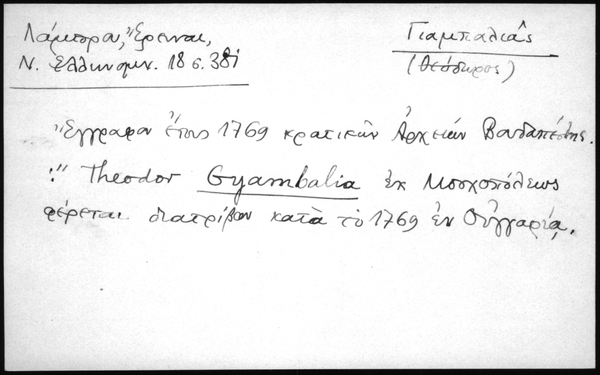 Λάμπρου, Ἔρευναι,
Ν. Ελληνομν. 18 σ. 381
Γιαμπαλιᾶς
(Θεόδωρος)
Ἔγγραφον ἔτους 1769 κρατικῶν Ἀρχείων Βουδαπέστης.
:" Theodor Gyambalia ἐκ Μοσχοπόλεως
φέρεται διατρίβων κατὰ τὸ 1769 ἐν Οὐγγαρίᾳ.